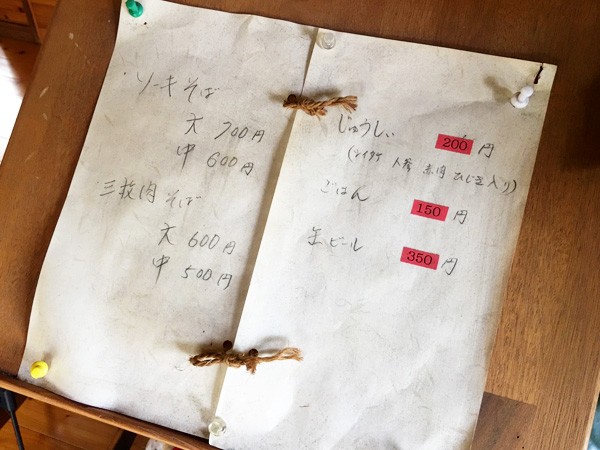 ソーキそば
大 700円
中 600円
三枚肉そば
大 600円
中 500円
じゅうしぃ 200円
(シイタケ 人参 赤肉 ひじき入り)
ごはん 150円
缶ビール 350円